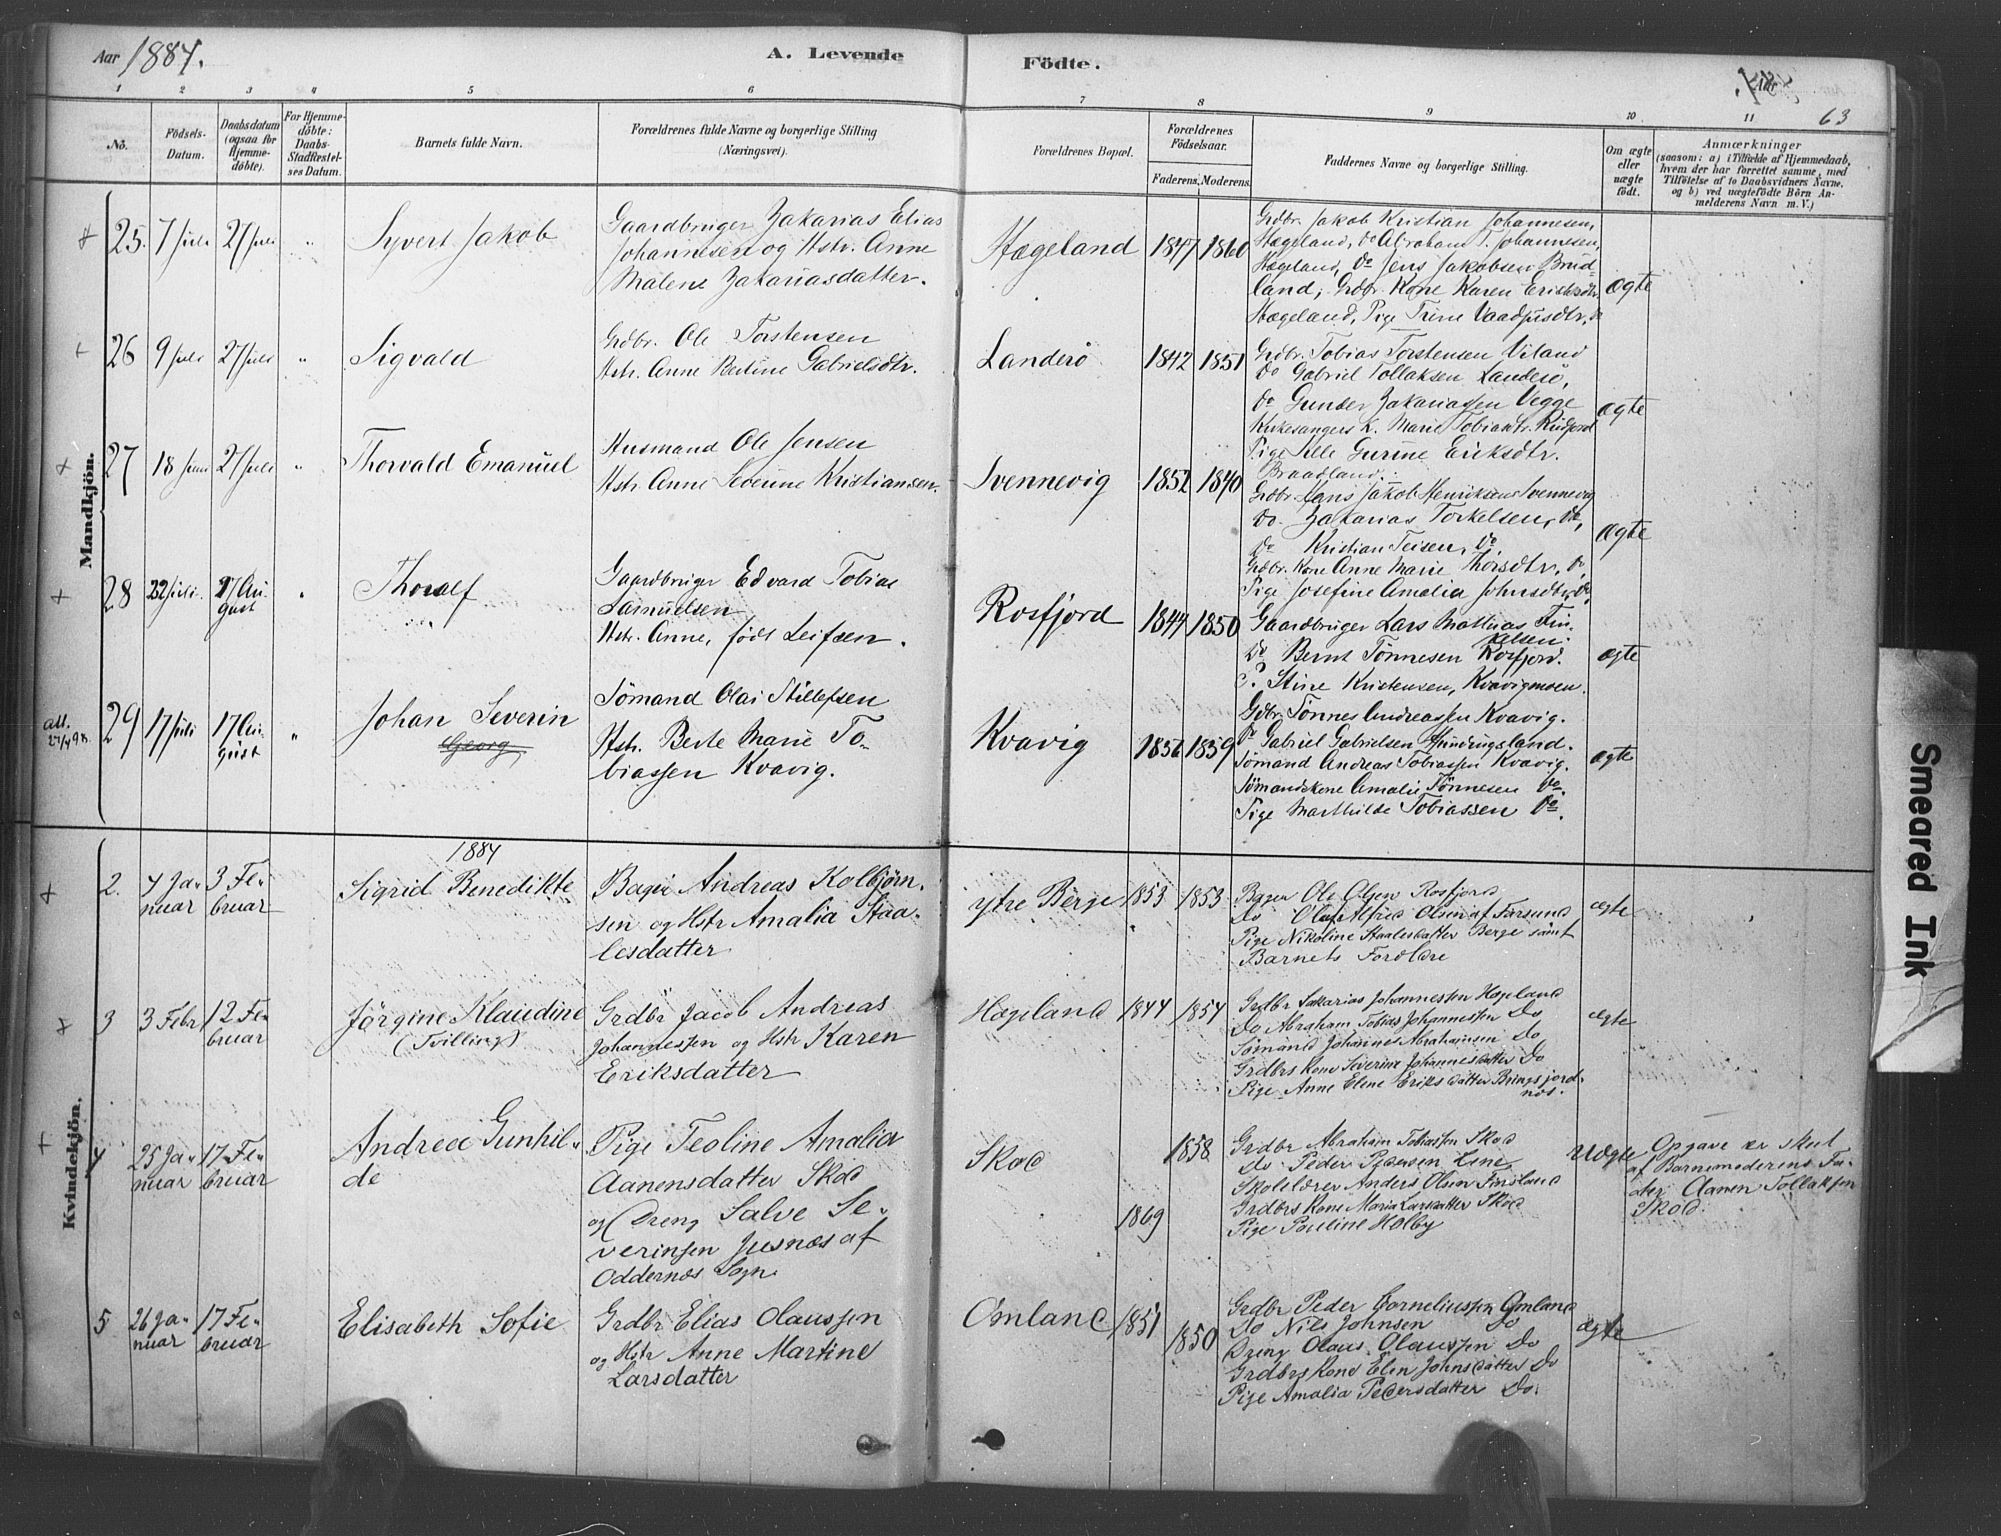 Aar 1884.
A. Levende
Födte.
Aar
63
1 2 3 4 5 6 7 8 9 10 11
No.
Födsels-
Datum.
Daabsdatum
(ogsaa for
Hjemme-
döbte).
For Hjemme-
döbte:
Daabs-
Stadfæstel-
ses Datum.
Barnets fulde Navn.
Forældrenes fulde Navne og borgerlige Stilling
(Næringsvei).
Forældrenes Bopæl.
Forældrenes
Födselsaar.
Faderens, Moderens.
Faddernes Navne og borgerlige Stilling.
Om ægte
eller
uægte
födt.
Anmærkninger
(saasom: a) i Tilfælde af Hjemmedaab,
hvem der har forrettet samme, med
Tilföielse af to Daabsvidners Navne,
og b) ved uægtefödte Börn An-
melderens Navn m. V.)
Mandkjön.
25. 7 Juli 27 Juli "
Syvert Jakob
Gaardbruger Zakarias Elias
Johannesen og Hstr. Anne
Malene Zakariasdatter.
Hægeland 1847 1860
Grdbr. Jakob Kristian Johannesen,
Hægeland, do Abraham T. Johannesen,
Hægeland, do Jens Jakobsen Brud-
land, Grdbr. Kone Karen Eriksdtr.
Hægeland, Pige Trine Vaadjusdtr, do
ægte
26 9 Juli 27 Juli "
Sigvald
Grdbr. Ole Torstensen
Hstr. Anne Bertine Gabrielsdtr.
Landerö 1842 1851
Grdbr. Tobias Torstensen Viland
do Gabriel Tollaksen Landerö,
do Gunder Zakariassen Vegge
Kirkesangers K. Marie Tobiasdtr. Rudjord
Pige Sille Gurine Eriksdtr.
Braadland.
ægte
27 18 Juni 27 Juli "
Thorvald Emanuel
Husmand Ole Jensen
Hstr. Anne Severine Kristiansen.
Svennevig 1852 1840
Grdbr. Hans Jakob Henriksen Svennevig
do. Zakarias Torkelsen, do,
do Kristian Teisen, do
Grdbr. Kone Anne Marie Thorsdtr. do,
Pige Josefine Amalia Johnsdtr, do.
ægte
28 22 Juli. 17 Au-
gust "
Thoralf
Gaardbruger Edvard Tobias
Samuelsen
Hstr. Anne, født Leifsen.
Rosfjord 1844 1850
Gaardbruger Lars Mathias Fin-
kelsen.
do Bernt Tönnesen Rosfjord.
P. Stine Kristensen, Kvavigmoen.
ægte
att.
27/4 98.
29 17 Juli 17 Au-
gust "
Johan Severin
Georg
Sömand Olai Stillefsen
Hstr. Berte Marie To-
biassen Kvavig.
Kvavig 1856 1859
Grdbr. Tönnes Andreassen Kvavig.
do Gabriel Gabrielsen Hundingsland.
Sömand Andreas Tobiassen Kvavig.
Sömandskone Amalie Tönnesen do.
Pige Marthilde Tobiassen do.
ægte
Kvindekjön.
1884
2. 4 Ja-
nuar 3 Fe-
bruar
Sigrid Benedikte
Bager Andreas Kolbjörn-
sen og Hstr Amalia Staa-
lesdatter
ytre Berge 1853 1853
Bager Ole Olsen Rosfjord
Do Oluf Alfred Olsen af Farsund
Pige Nikoline Staalesdatter Berge samt
Barnets Forældre
ægte
3 3 Febr 12 Fe-
bruar
Jörgine Klaudine
(Tvilling)
Grdbr Jacob Andreas
Johannessen og Hstr Karen
Eriksdatter
Hægeland 1844 1854
Grdbr Sakarias Johannessen Hægeland
Do Abraham Tobias Johannessen Do
Sömand Johannes Abrahamsen Do
Grdbrs Kone Severine Johannesdatter Do
Pige Anne Elene Eriksdatter Bringsjord-
næs.
ægte
4 25 Ja-
nuar 17 Fe-
bruar
Andrea Gunhil-
de
Pige Teoline Amalia
Aanensdatter Skod
og Dreng Salve Se-
verinsen Jusnæs af
Oddernæs Sogn
Skod 1869 1858
Grdbr Abraham Tobiassen Skod
Do Peder Pedersen Lene
Skolelærer Anders Olsen Finsland
Grdbrs Kone Maria Larsdatter Skod
Pige Pauline Holby
Uægte
Opgave er skeet
af Barnemoderens Fa-
der Aanen Tollaksen
Skod.
5 26 Ja-
nuar 17 Fe-
bruar
Elisabeth Sofie
Grdbr Elias Olaussen
og Hstr Anne Martine
Larsdatter
Omland 1851 1850
Grdbr Peder Corneliussen Omland
Do Nils Johnsen Do
Dreng Olaus Olaussen Do
Grdbrs Kone Elen Johnsdatter Do
Pige Amalia Pedersdatter Do
ægte
Smeared Ink